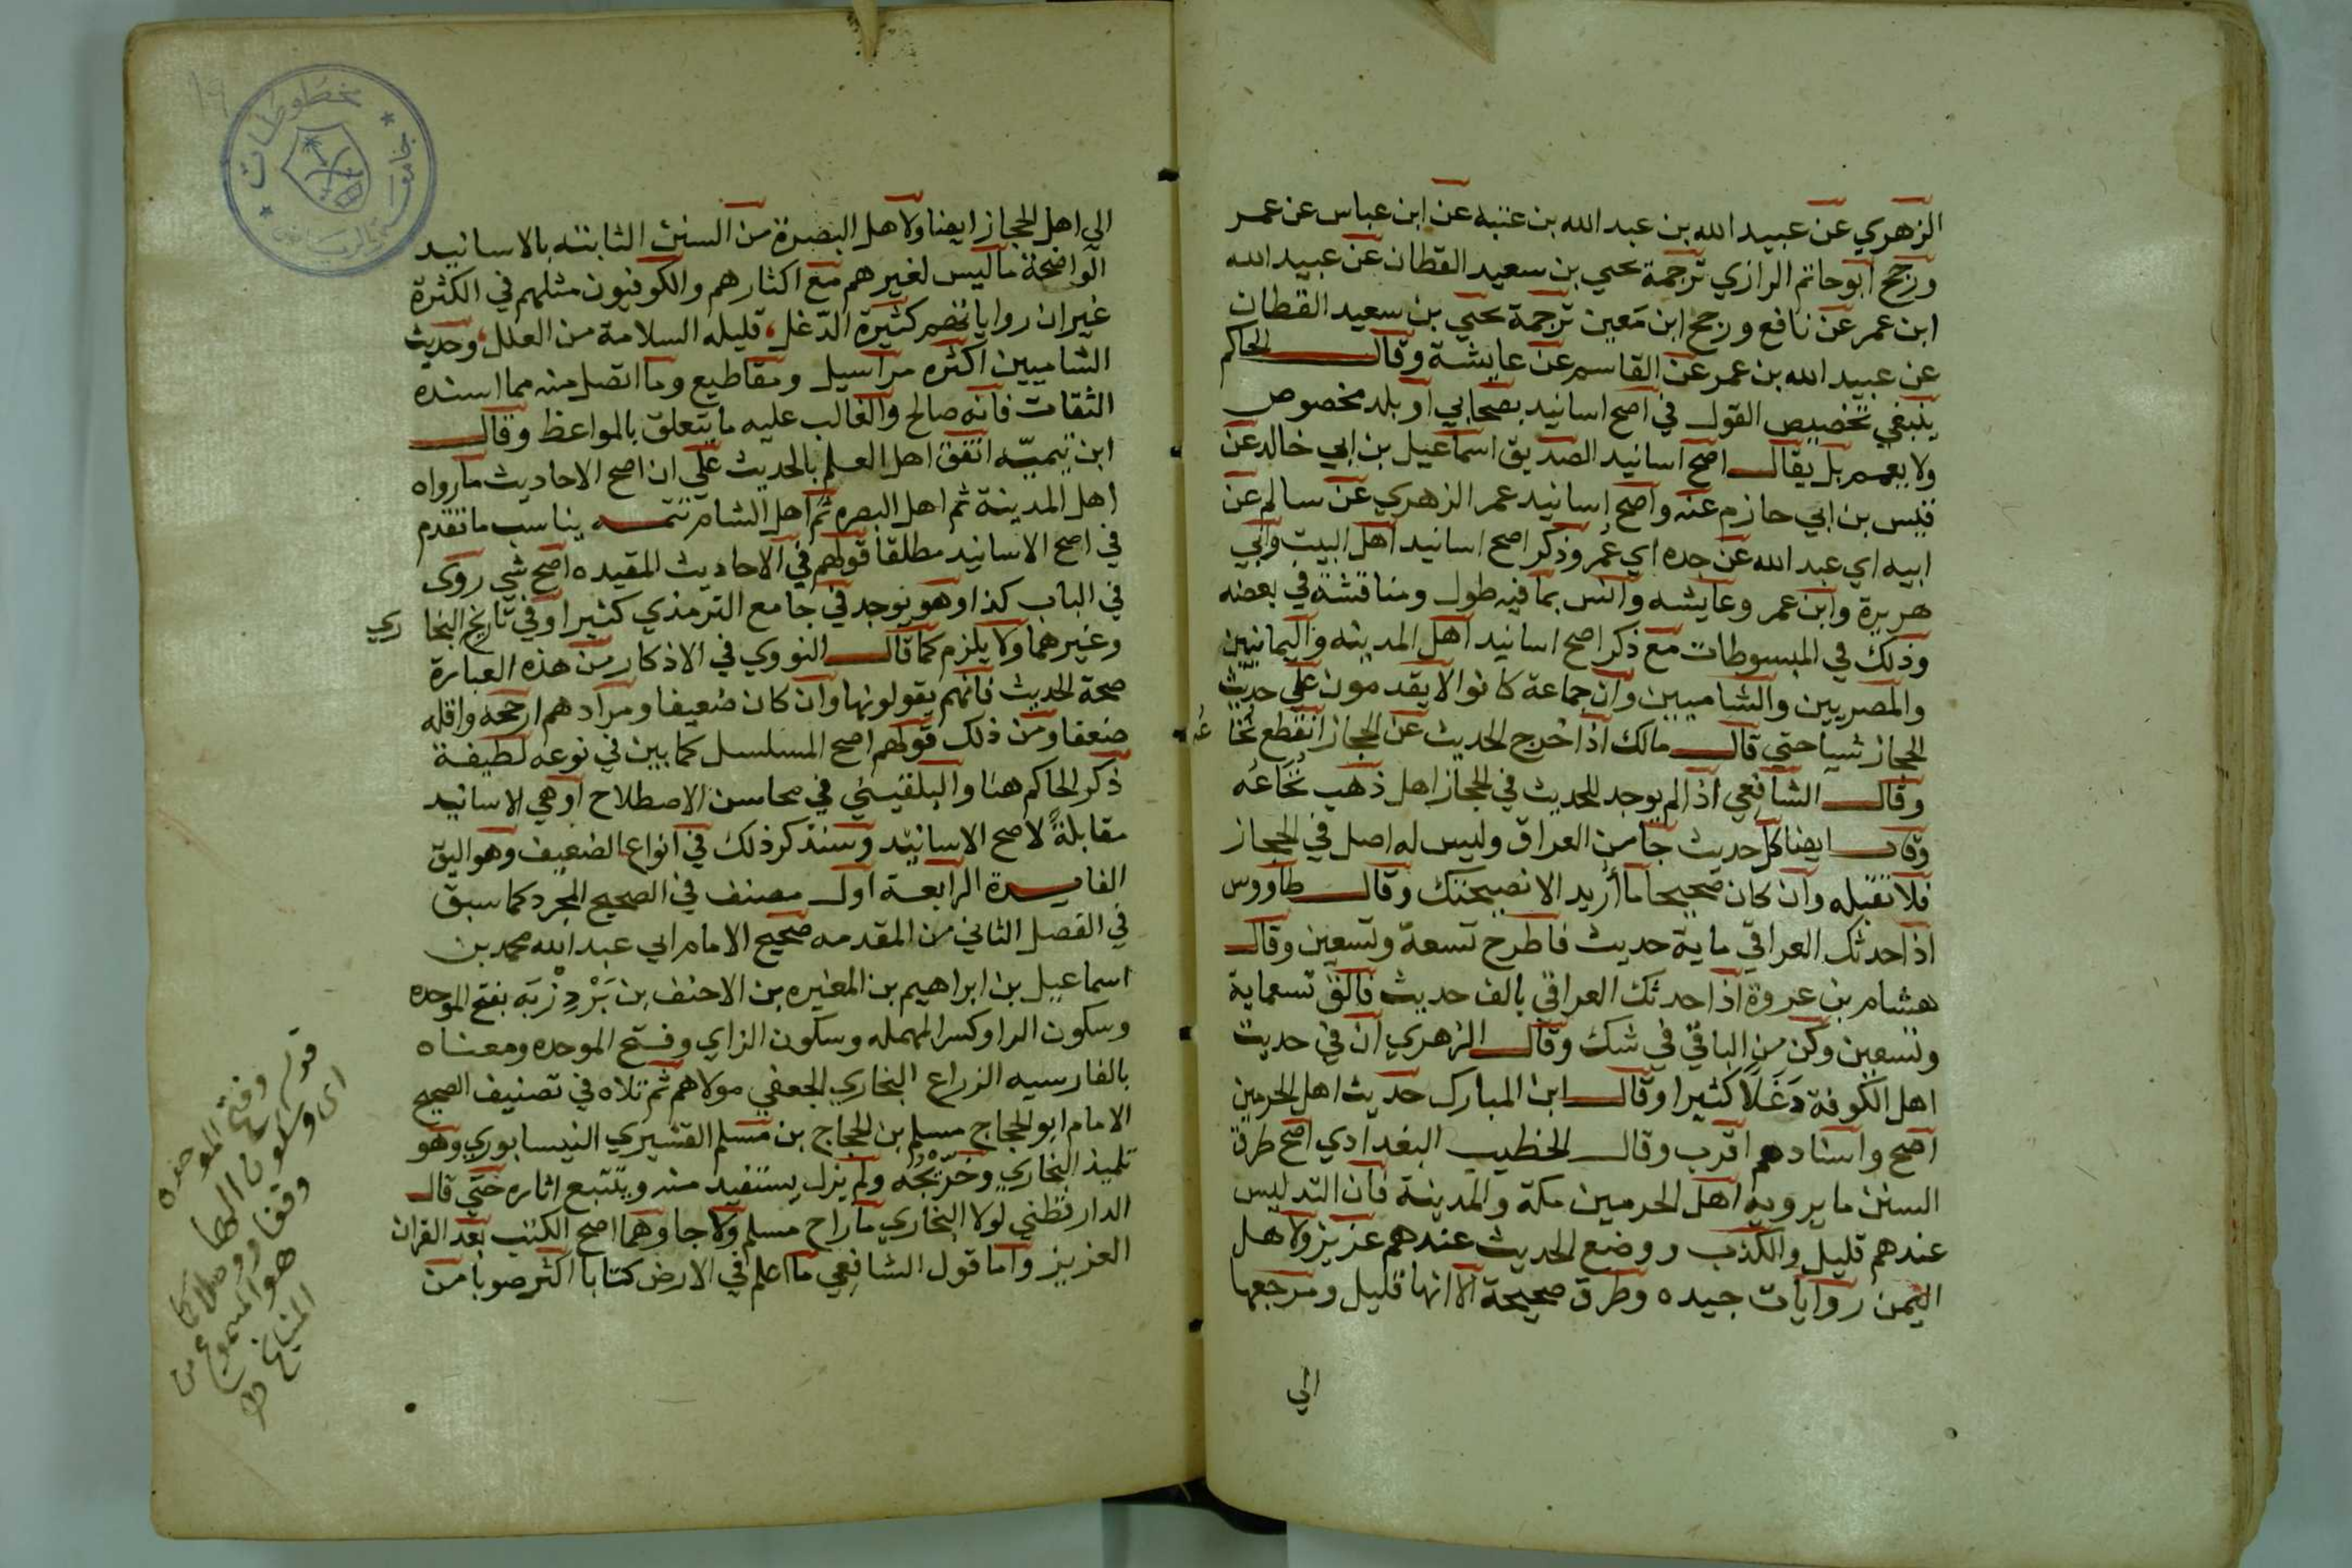 الزهري عن عبيد الله بن عبد الله بن عتبه عن ابن عباس عن عمر
ورجح ابو حاتم الرازي ترجمة يحيي بن سعيد القطان عن عبيد الله
ابن عمر عن نافع ورجح ابن معين ترجمة يحيي بن سعيد القطان
عن عبيد الله بن عمر عن القاسم عن عايشة وقال الحاكم
ينبغي تخصيص القول في اصح اسانيد بصحابي او بلد مخصوص
ولا يعمم بل يقال اصح اسانيد الصديق اسماعيل بن ابي خالد عن
قيس بن ابي حازم عنه واصح اسانيد عمر الزهري عن سالم عن
ابيه اي عبد الله عن جده اي عمر وذكر اصح اسانيد اهل البيت وابي
هريرة وابن عمر وعايشه وانس بما فيه طول ومناقشة في بعضه
وذلك في المبسوطات مع ذكر اصح اسانيد اهل المدينه واليمانيين
والمصريين والشاميين وان جماعة كانوا لا يقدمون علي حديث
الحجاز شيا حتي قال مالك اذا خرج الحديث عن الحجاز انقطع نخاعه
وقال الشافعي اذا لم يوجد للحديث في الحجاز اصل ذهب نخاعه
وقال ايضا كل حديث جا من العراق وليس له اصل في الحجاز
فلا تقبله وان كان صحيحا ما أريد الا نصيحتك وقال طاووس
اذا حدثك العراقي ماية حديث فاطرح تسعة وتسعين وقال
هشام بن عروة اذا حدثك العراقي بالف حديث فالق تسعماية
وتسعين وكن من الباقي في شك وقال الزهري ان في حديث
اهل الكوفة دَغَلًا كثيرا وقال ابن المبارك حديث اهل الحرمين
اصح واسنادهم اقرب وقال الخطيب البغدادي اصح طرق
السنن ما يرويه اهل الحرمين مكة والمدينة فان التدليس
عندهم قليل والكذب ووضع الحديث عندهم عزيز ولاهل
اليمن روايات جيده وطرق صحيحة الا انها قليل ومرجعها
الي
مخطوطات
جامعة الرياض
19
الى اهل الحجاز ايضا ولاهل البصرة من السنن الثابته بالاسانيد
الواضحة ما ليس لغيرهم مع اكثارهم والكوفيون مثلهم في الكثرة
غير ان رواياتهم كثيرة الدّغل، قليله السلامة من العلل، وحديث
الشاميين اكثره مراسيل ومقاطيع وما اتصل منه مما اسنده
الثقات فانه صالح والغالب عليه ما يتعلق بالمواعظ وقال
ابن تيميّه اتفق اهل العلم بالحديث علي ان اصح الاحاديث ما رواه
اهل المدينة ثم اهل البصره ثم اهل الشام تتمه يناسب ما تقدم
في اصح الاسانيد مطلقا قولهم في الاحاديث المقيده اصح شي روى
في الباب كذا وهو يوجد في جامع الترمذي كثيرا وفي تاريخ البخاري
وغيرهما ولا يلزم كما قال النووي في الاذكار من هذه العبارة
صحة الحديث فانهم يقولونها وان كان ضعيفا ومرادهم ارجحه واقله
ضعفا ومن ذلك قولهم اصح المسلسل كما بين في نوعه لطيفة
ذكر الحاكم هنا والبلقيني في محاسن الاصطلاح اوهي الاسانيد
مقابلةً لاصح الاسانيد وسنذكر ذلك في انواع الضعيف وهو اليق
الفايدة الرابعة اول مصنف في الصحيح المجرد كما سبق
في الفصل الثاني من المقدمه صحيح الامام ابي عبد الله محمد بن
اسماعيل بن ابراهيم بن المغيره بن الاحنف بن بَرْدِزْبَه بفتح الموحده
وسكون الرا وكسر المهمله وسكون الزاي وفتح الموحده ومعناه
بالفارسيه الزراع البخاري الجعفي مولاهم ثم تلاه في تصنيف الصحيح
الامام ابو الحجاج مسلم بن الحجاج بن مسلم القشيري النيسابوري وهو
تلميذ البخاري وخرّيجُه ولم يزل يستفيد منه ويتتبع اثاره حتي قال
الدارقطني لولا البخاري ما راح مسلم ولا جا وهما اصح الكتب بعد القران
العزيز واما قول الشافعي ما اعلم في الارض كتابا اكثر صوبا من
قوله وفتح الموحده
اى وسكون الها
وقفا ووصلا كما
هو المسموع من
المشايخ